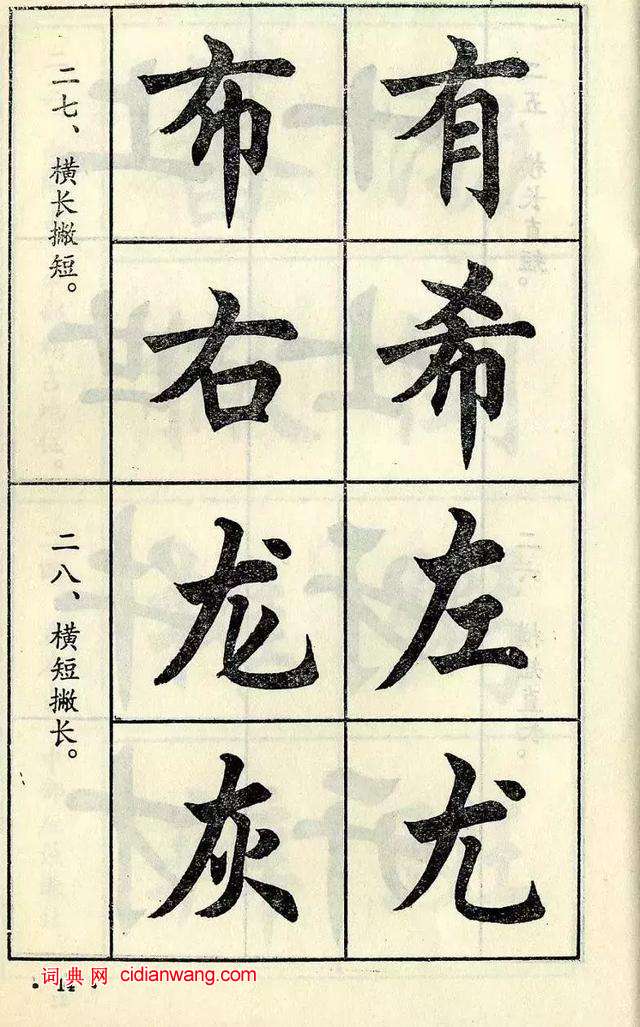 二七、横长撇短。
有
布
希
右
二八、横短撇长。
左
龙
尤
灰
词典网 cidianwang.com